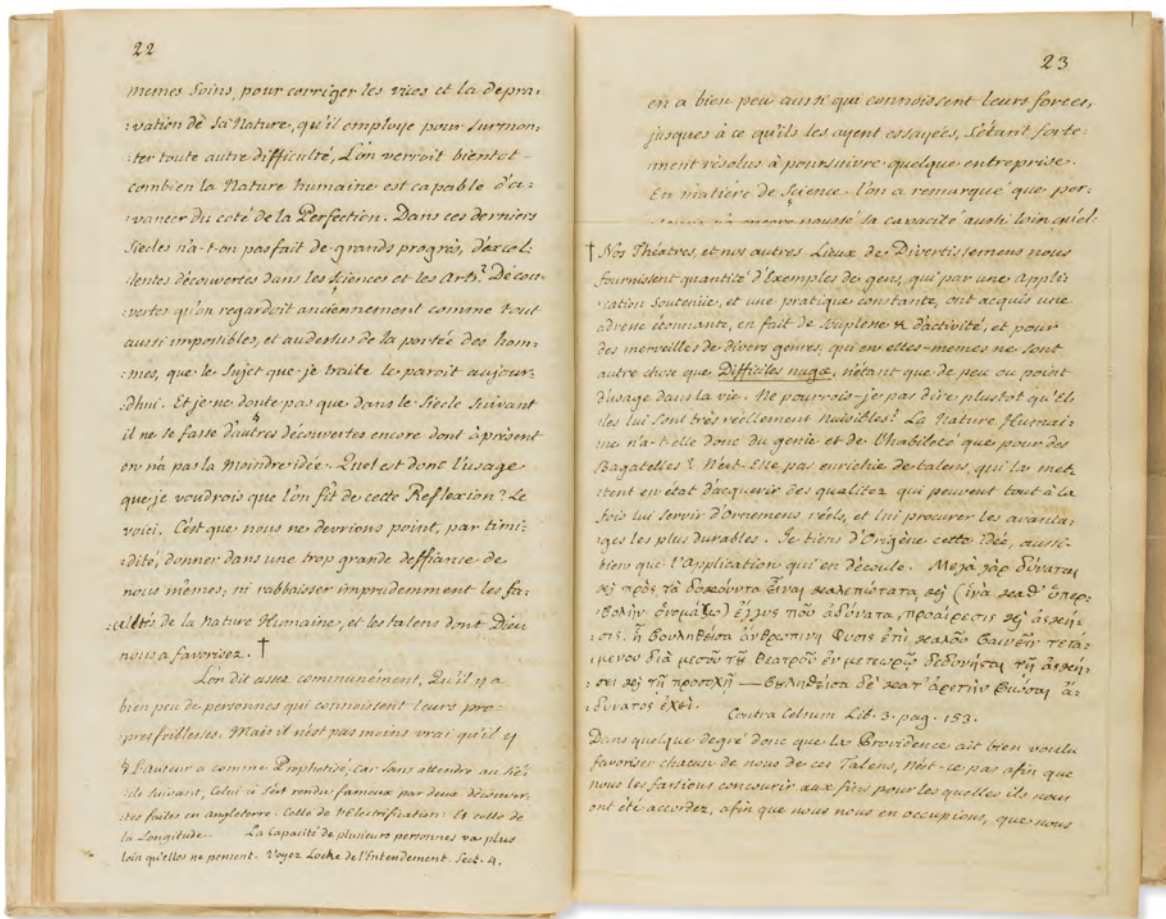 22
memes Soins, pour corriger les vices et la depra:
:vation de sa Nature, qu'il employe pour Surmon:
:ter toute autre difficulté, L'on verroit bientot
combien la Nature humaine est capable d'a:
:vancer du coté de la Perfection. Dans ces derniers
Siecles n'a-t-on pas fait de grands progrès, d'excel:
:lentes découvertes dans les Sciences et les Arts? Decou
:vertes qu'on regardoit anciennement comme tout
aussi impossibles, et au dessus de la portée des hom:
:mes, que le Sujet que je traite le paroit aujour:
:dhui. Et je ne doute pas que dans le Siecle Suivant
il ne se fasse d'autres découvertes encore dont à présent
on n'a pas la moindre idée. Quel est donc l'usage
que je voudrois que l'on fît de cette Reflexion? Le
voici. C'est que nous ne devrions point, par timi:
:dité, donner dans une trop grande deffiance de
nous mêmes; ni rabbaisser imprudemment les fa:
:cultés de la Nature Humaine, et les talens dont Dieu
nous a favorisez. †
L'on dit assez communément, Qu'il y a
bien peu de personnes qui connoissent leurs pro:
:pres foiblesses. Mais il n'est pas moins vrai qu'il y
§ L'Auteur a comme Prophetisé; car sans attendre au Sié:
:cle suivant, Celui-ci s'est rendu fameux par deux découver:
:tes faites en angleterre. Celle de l'Electrification: Et celle de
la Longitude. La Capacité de plusieurs personnes va plus
loin qu'elles ne pensent. Voyez Locke de l'Entendement. Sect. 4.
23
en a bien peu aussi qui connoissent leurs forces,
jusques à ce qu'ils les ayent essayées, s'étant forte:
:ment résolus à poursuivre quelque entreprise.
En matière de Science l'on a remarqué que per:
poussé sa capacité aussi loin qu'el:
† Nos Théatres, et nos autres Lieux de Divertissemens nous
fournissent quantité d'Exemples de gens, qui par une Appli:
:cation Soutenüe, et une pratique constante, ont acquis une
adresse étonnante, en fait de souplesse & d'activité, et pour
des merveilles de divers genres, qui en elles-memes ne sont
autre chose que Difficiles nugæ, n'étant que de peu ou point
d'usage dans la vie. Ne pourrois-je pas dire plustot qu'El:
:les lui sont très réellement nuisibles? La Nature Humai:
:ne n'a-t-elle donc du genie et de l'habileté que pour des
Bagatelles? N'est-Elle pas enrichie de talens, qui la met:
:tent en état d'acquerir des qualitez qui peuvent tout à la
fois lui servir d'Ornemens réels, et lui procurer les avanta:
:ges les plus durables. Je tiens d'Origène cette Idée, aussi-
bien que l'Application qui en découle. Μεγὰ γὰρ δύναται
καὶ πρὸς τὰ δοκούντα εἶναι χαλεπώτατα, καὶ (ἱνὰ καθ' ὑπερ:
:βολὴν ὀνομάζω) ἐγγυς που ἀδύνατα, προαίρεσις καὶ ἀσκή:
:σις. ἢ βουληθείσα ἀνθρωπινη Φυσις ἐπὶ καλοῦ βαινεῖν τετα:
:μενου διὰ μεσοῦ τῦ θεατροῦ ἐν μετεωρῷ δεδονήται τῇ ἀσκή:
:σει καὶ τῇ προσοχῇ — βυληθεῖσα δὲ κατ' ἀρετὴν βιῶσαι ἀ:
:δυνατος ἐχει.
Contra Celsum Lib. 3. pag. 153.
Dans quelque degré donc que la Providence ait bien voulu
favoriser chacun de nous de ces Talens, N'est-ce pas afin que
nous les fassions concourir aux fins pour les quelles ils nous
ont été accordez, afin que nous nous en occupions, que nous